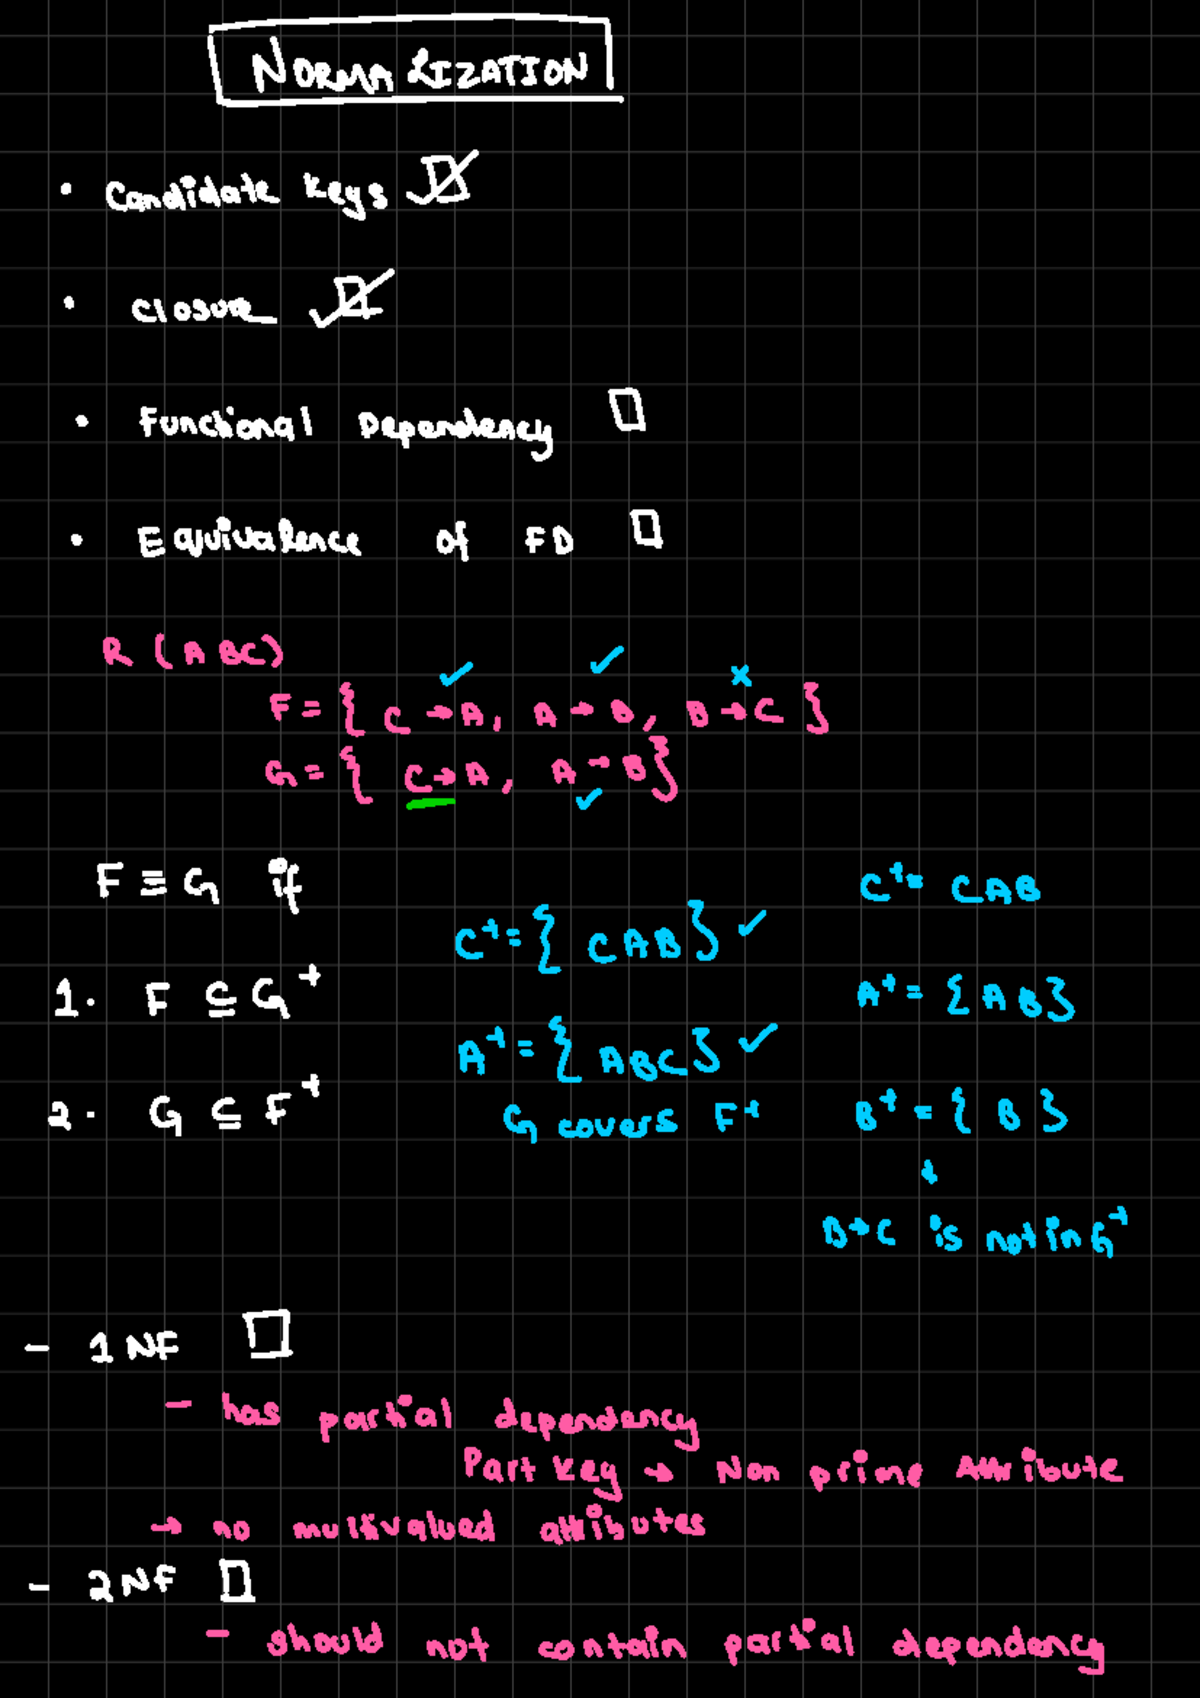 NORMALIZATION
• Candidate keys ☑
• closure ☑
• Functional Dependency ☐
• Equivalence of FD ☐
R (ABC)
✓ ✓ x
F = { C → A, A → B, B → C }
G = { C → A, A → B }
✓
F ≡ G if
C⁺ = CAB
C⁺ = { CAB } ✓
1. F ⊆ G⁺
A⁺ = { AB }
A⁺ = { ABC } ✓
2. G ⊆ F⁺
G covers F⁺
B⁺ = { B }
B → C is not in G⁺
- 1NF ☐
- has partial dependency
Part key → Non prime Attribute
→ no multivalued attributes
- 2NF ☐
- should not contain partial dependency